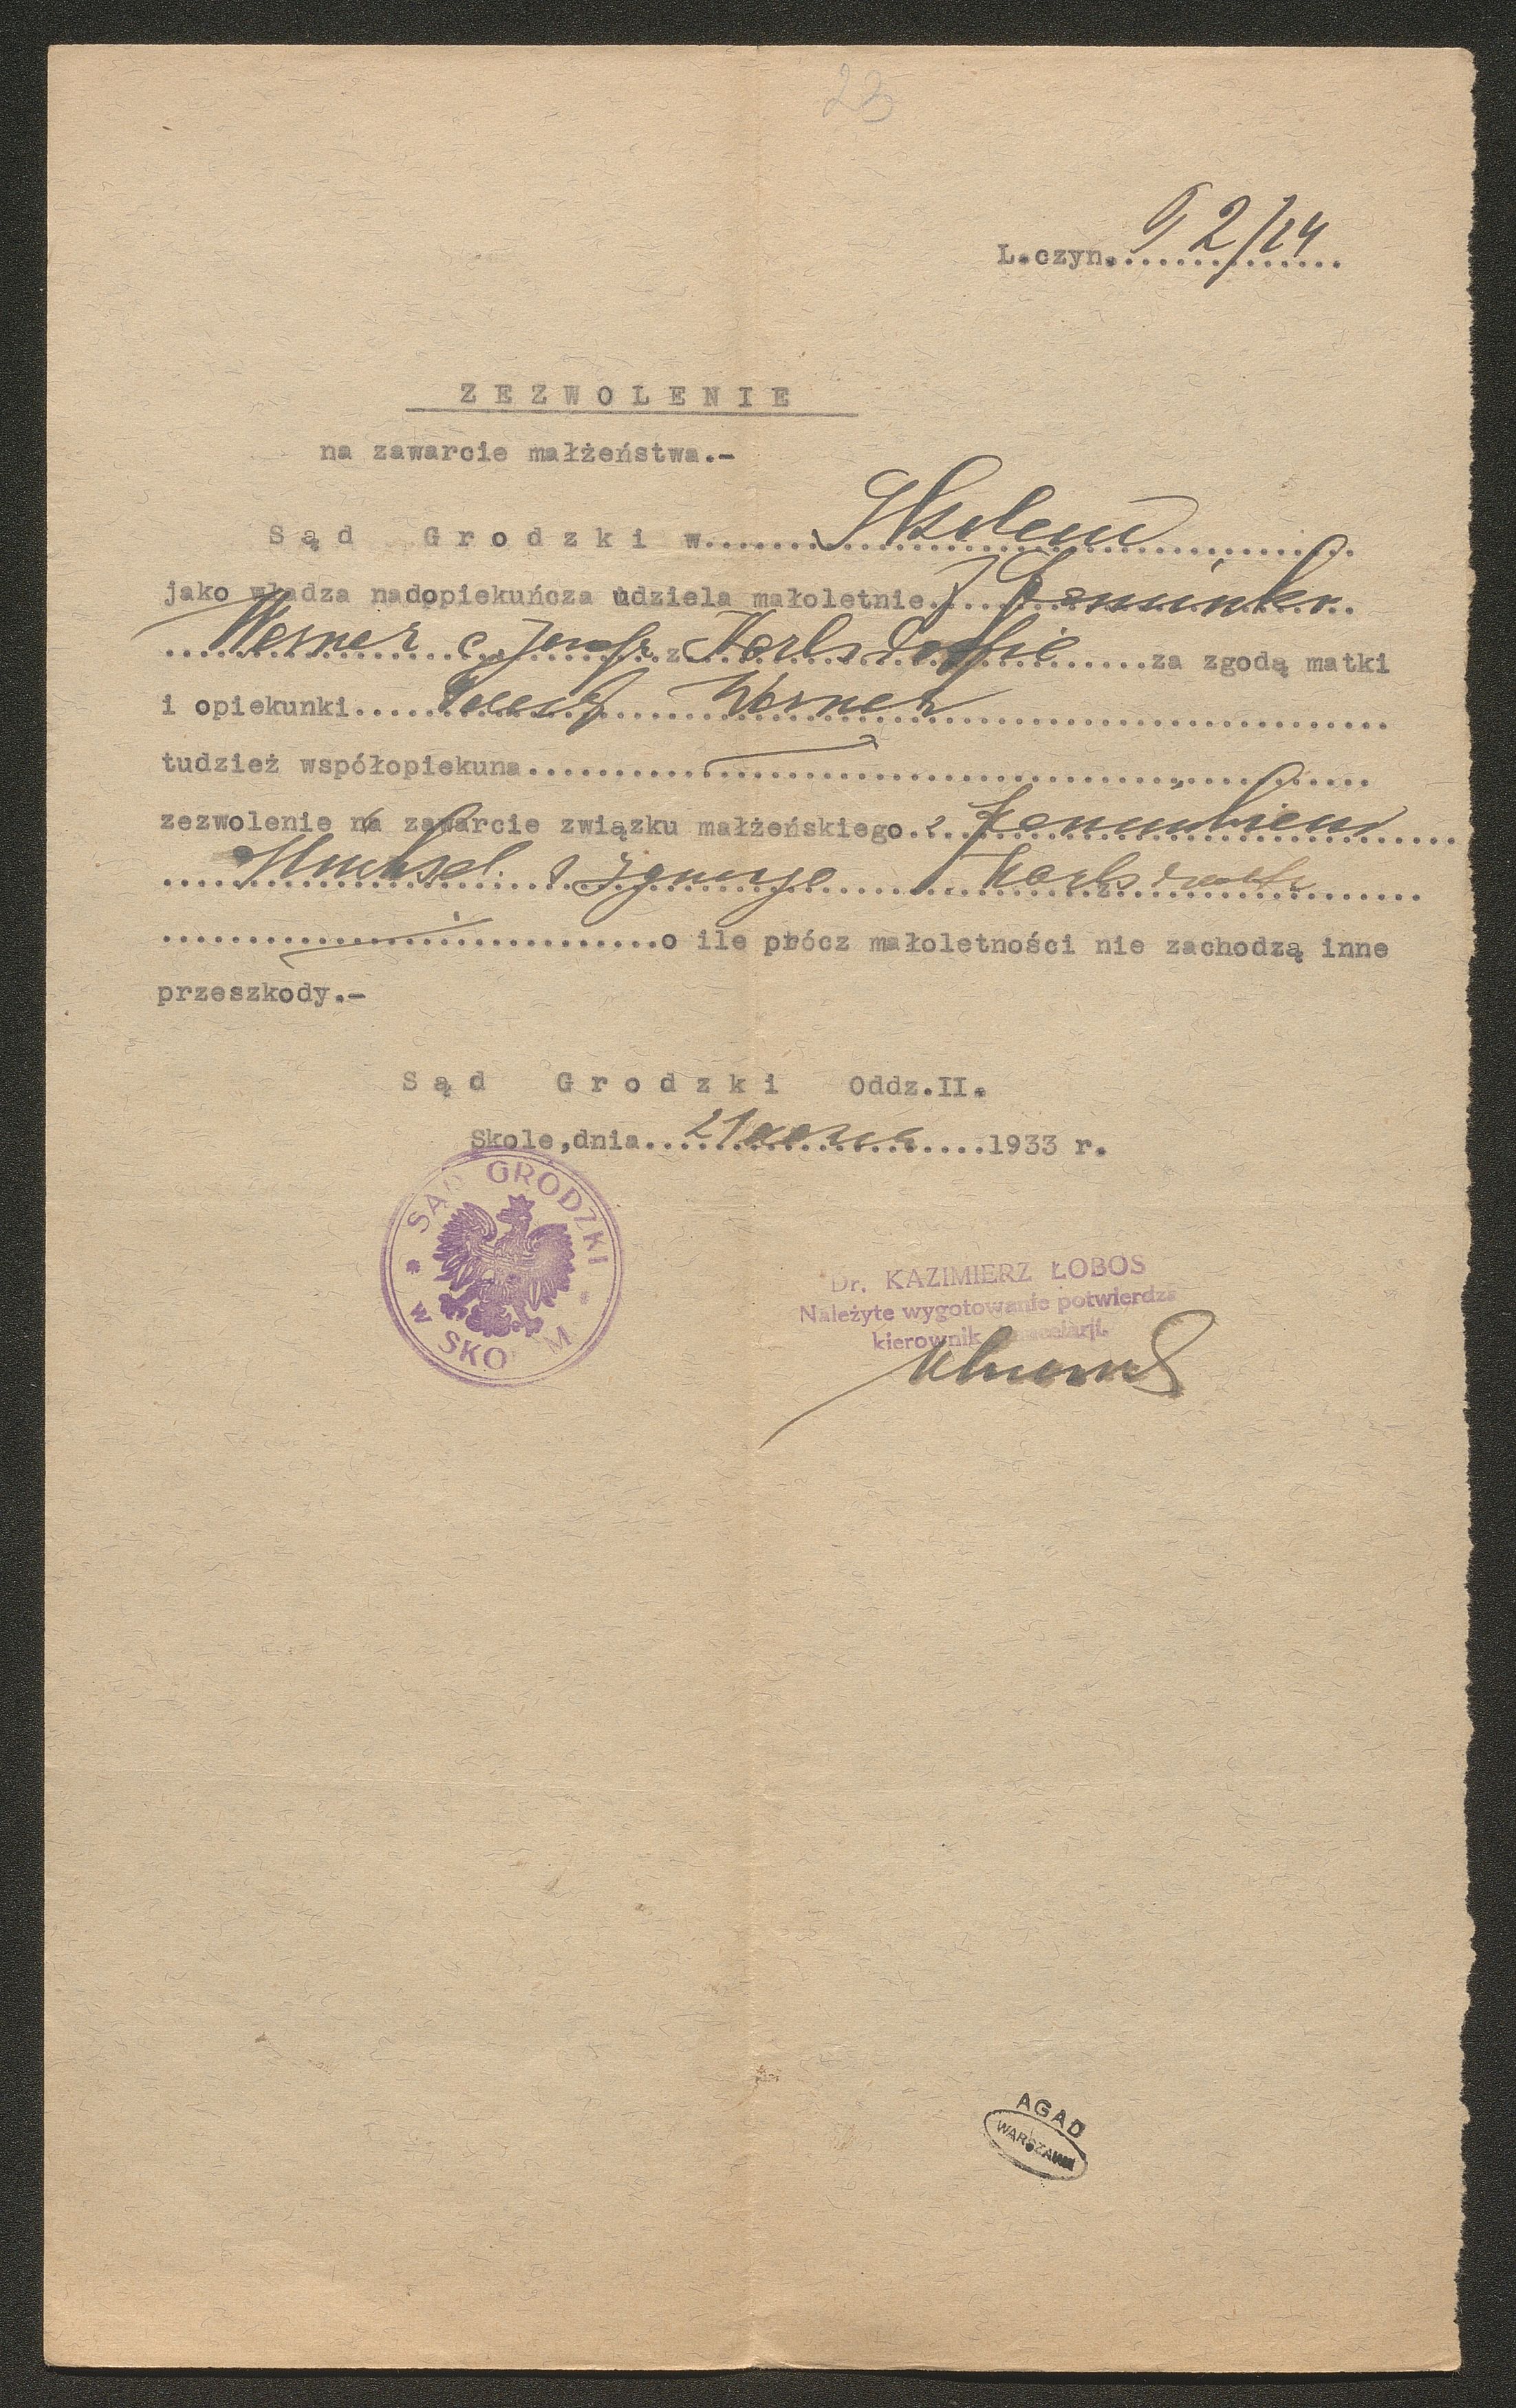 23
L.czyn. 2/24
ZEZWOLENIE
na zawarcie małżeństwa.-
Sąd Grodzki w Skolem
jako władza nadopiekuńcza udziela małoletniej
Werner c. Józefa z Karlsdorfie za zgodą matki
i opiekunki Werner
tudzież współopiekuna
zezwolenie na zawarcie związku małżeńskiego z
Ignacego Karlsdorfu
o ile prócz małoletności nie zachodzą inne
przeszkody.-
Sąd Grodzki Oddz.II.
Skole,dnia 21 1933 r.
SĄD GRODZKI
w SKO M
Dr. KAZIMIERZ ŁOBOS
Należyte wygotowanie potwierdza
kierownik kancelarji.
AGAD
WARSZAWA